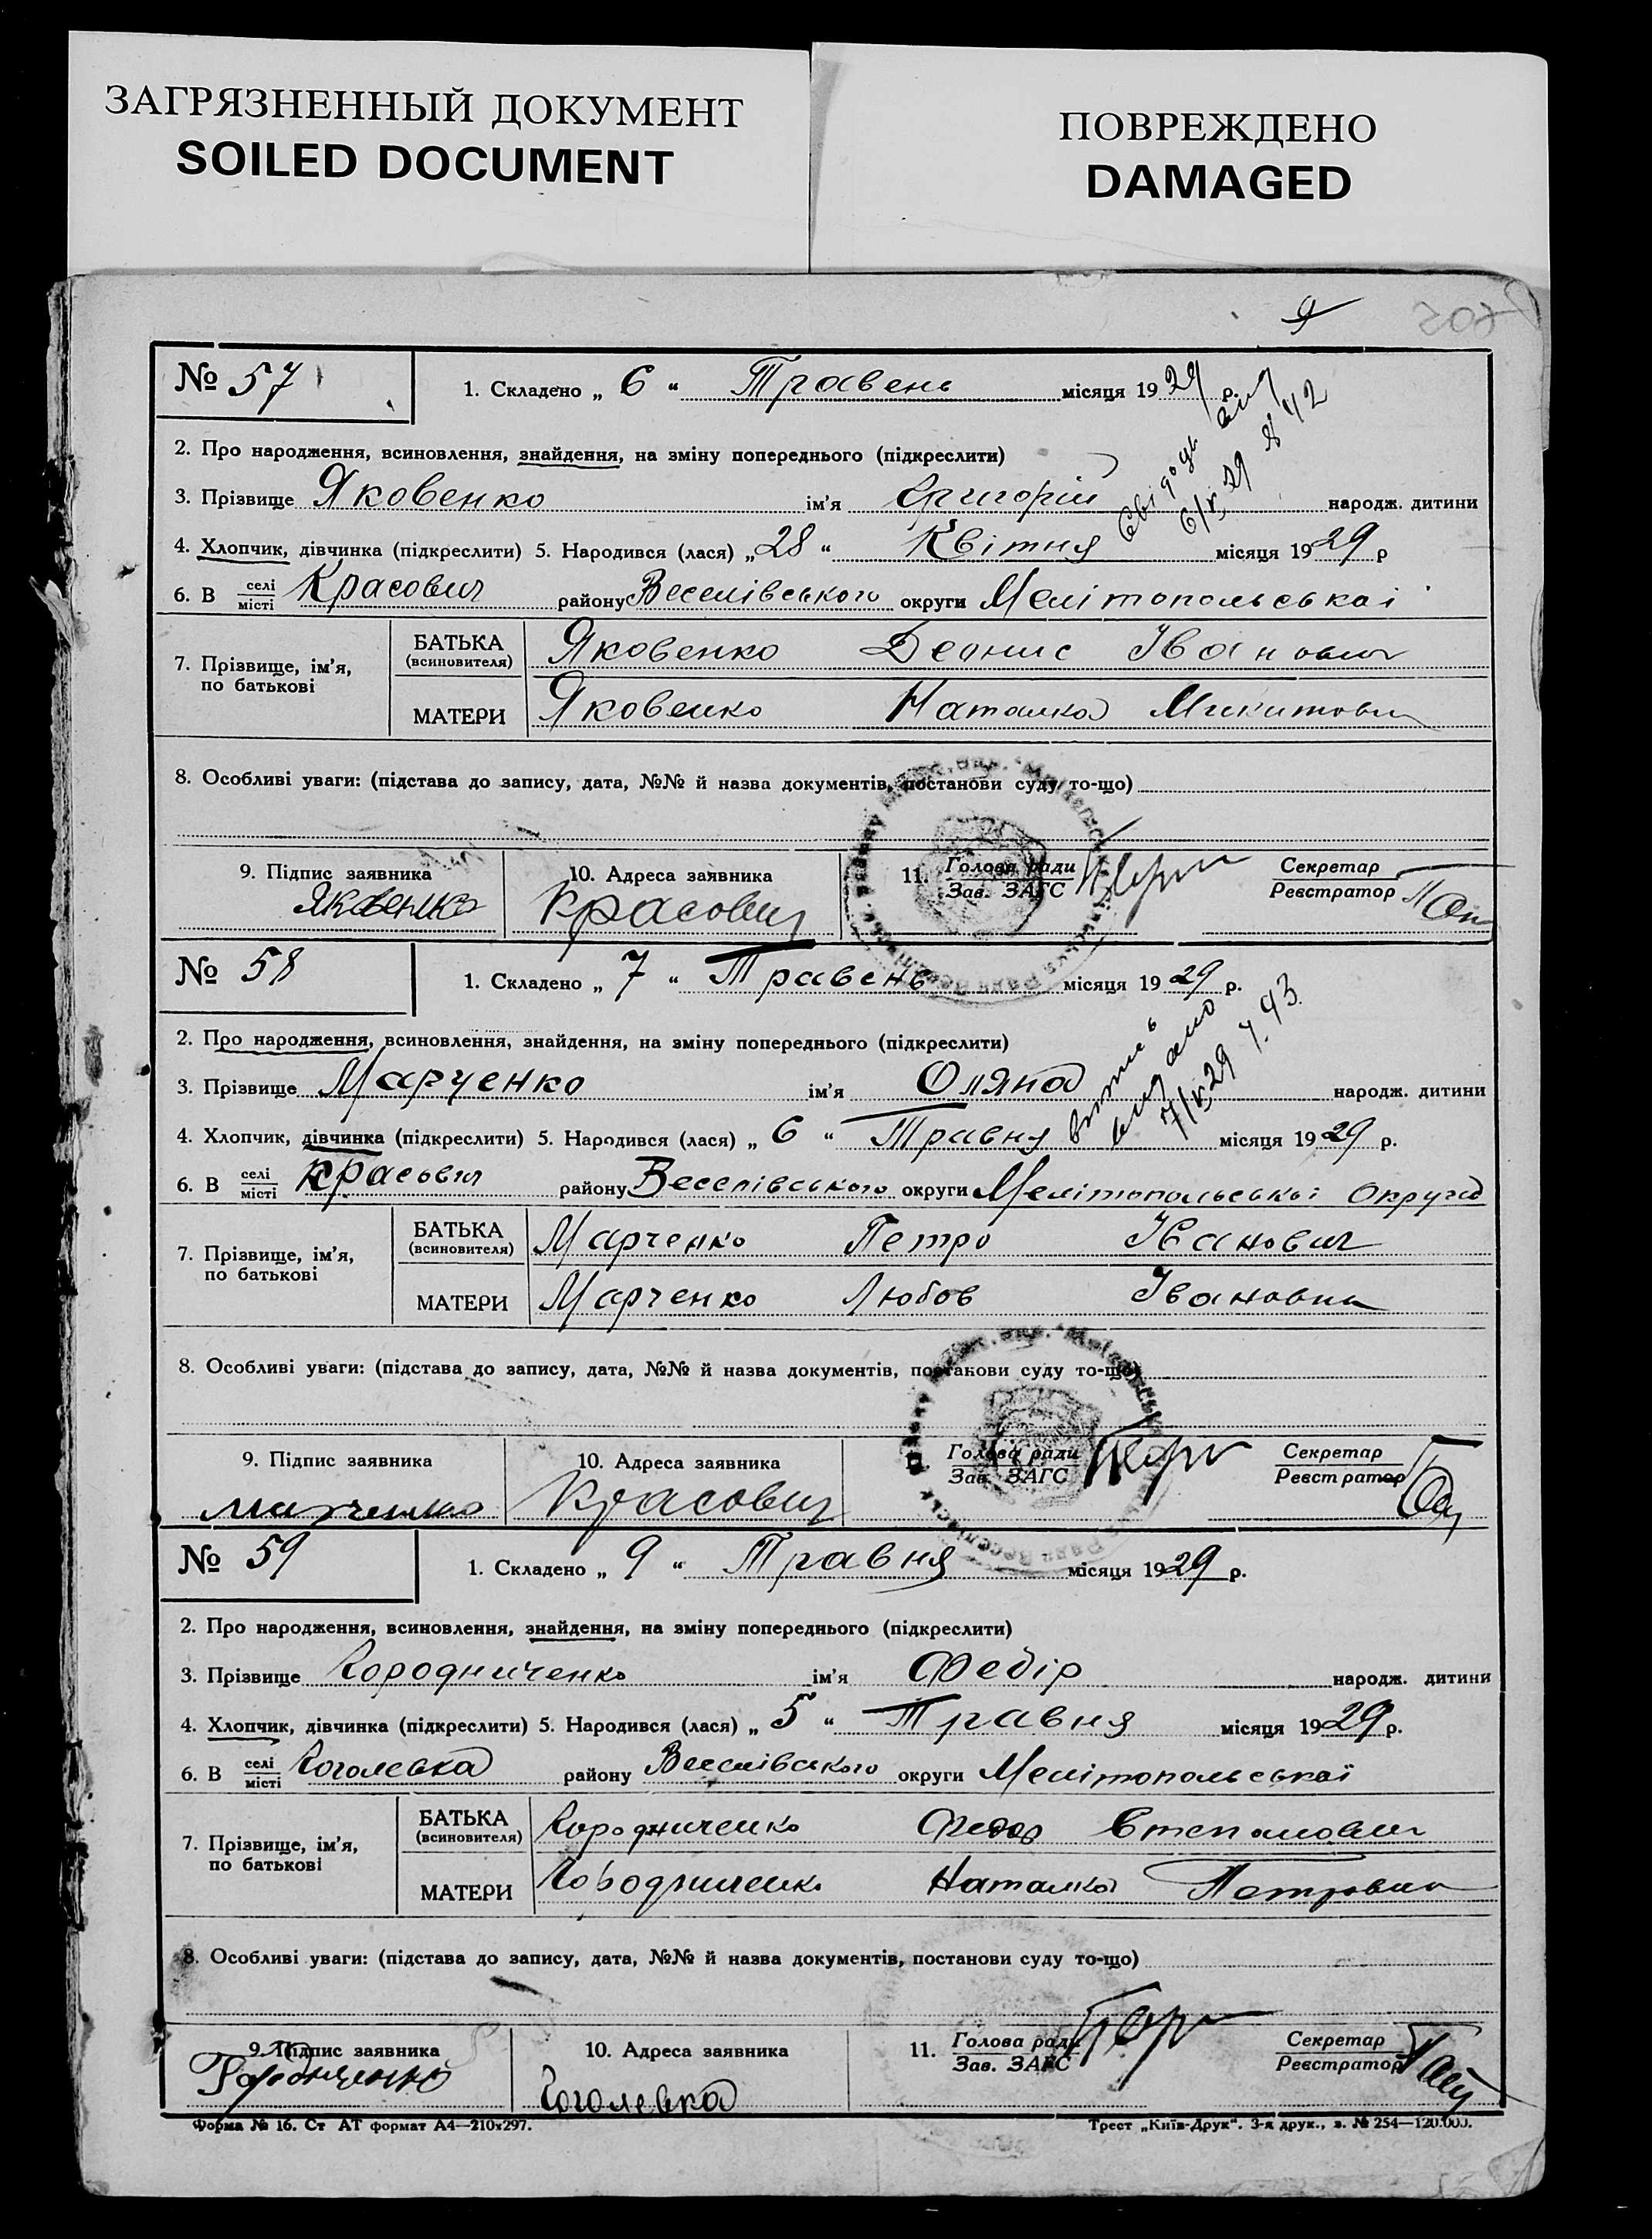 ЗАГРЯЗНЕННЫЙ ДОКУМЕНТ
SOILED DOCUMENT
ПОВРЕЖДЕНО
DAMAGED
9
№ 57
1. Складено „ 6 “ Травень місяця 1929 р.
2. Про народження, всиновлення, знайдення, на зміну попереднього (підкреслити)
3. Прізвище Яковенко ім’я Григорій народж. дитини
4. Хлопчик, дівчинка (підкреслити) 5. Народився (лася) „28“ Квітня місяця 1929 р
6. В селі місті Красович району Веселівського округи Мелітопольскаі
7. Прізвище, ім’я, по батькові
БАТЬКА (всиновителя) Яковенко Денис Іванович
МАТЕРИ Яковенко Наталка Микитовн
8. Особливі уваги: (підстава до запису, дата, №№ й назва документів, постанови суду то-що)
9. Підпис заявника Яковенко
10. Адреса заявника Красович
11. Голова ради Зав. ЗАГС
Секретар Реєстратор
№ 58
1. Складено „ 7 “ Травень місяця 1929 р.
2. Про народження, всиновлення, знайдення, на зміну попереднього (підкреслити)
3. Прізвище Марченко ім’я Оляна народж. дитини
витись видано 7/V 29
4. Хлопчик, дівчинка (підкреслити) 5. Народився (лася) „ 6 “ Травня місяця 1929 р.
6. В селі місті Красович району Веселівського округи Мелітопольськоі Округа
7. Прізвище, ім’я, по батькові
БАТЬКА (всиновителя) Марченко Петро Іванович
МАТЕРИ Марченко Любов Івановна
8. Особливі уваги: (підстава до запису, дата, №№ й назва документів, постанови суду то-що)
9. Підпис заявника Марченко
10. Адреса заявника Красович
Голова ради Зав. ЗАГС
Секретар Реєстратор
№ 59
1. Складено „ 9 “ Травня місяця 1929 р.
2. Про народження, всиновлення, знайдення, на зміну попереднього (підкреслити)
3. Прізвище Городниченко ім’я Федір народж. дитини
4. Хлопчик, дівчинка (підкреслити) 5. Народився (лася) „ 5 “ Травня місяця 1929 р.
6. В селі місті Гоголевка району Веселівського округи Мелітопольськаї
7. Прізвище, ім’я, по батькові
БАТЬКА (всиновителя) Городниченко Федор Степанович
МАТЕРИ Городниченко Наталка Петровна
8. Особливі уваги: (підстава до запису, дата, №№ й назва документів, постанови суду то-що)
9. Підпис заявника
10. Адреса заявника Гоголевка
11. Голова ради Зав. ЗАГС
Секретар Реєстратор
Форма № 16. Ст АТ формат А4—210х297.
Трест „Київ-Друк“. 3-я друк., з. № 254—120.000.